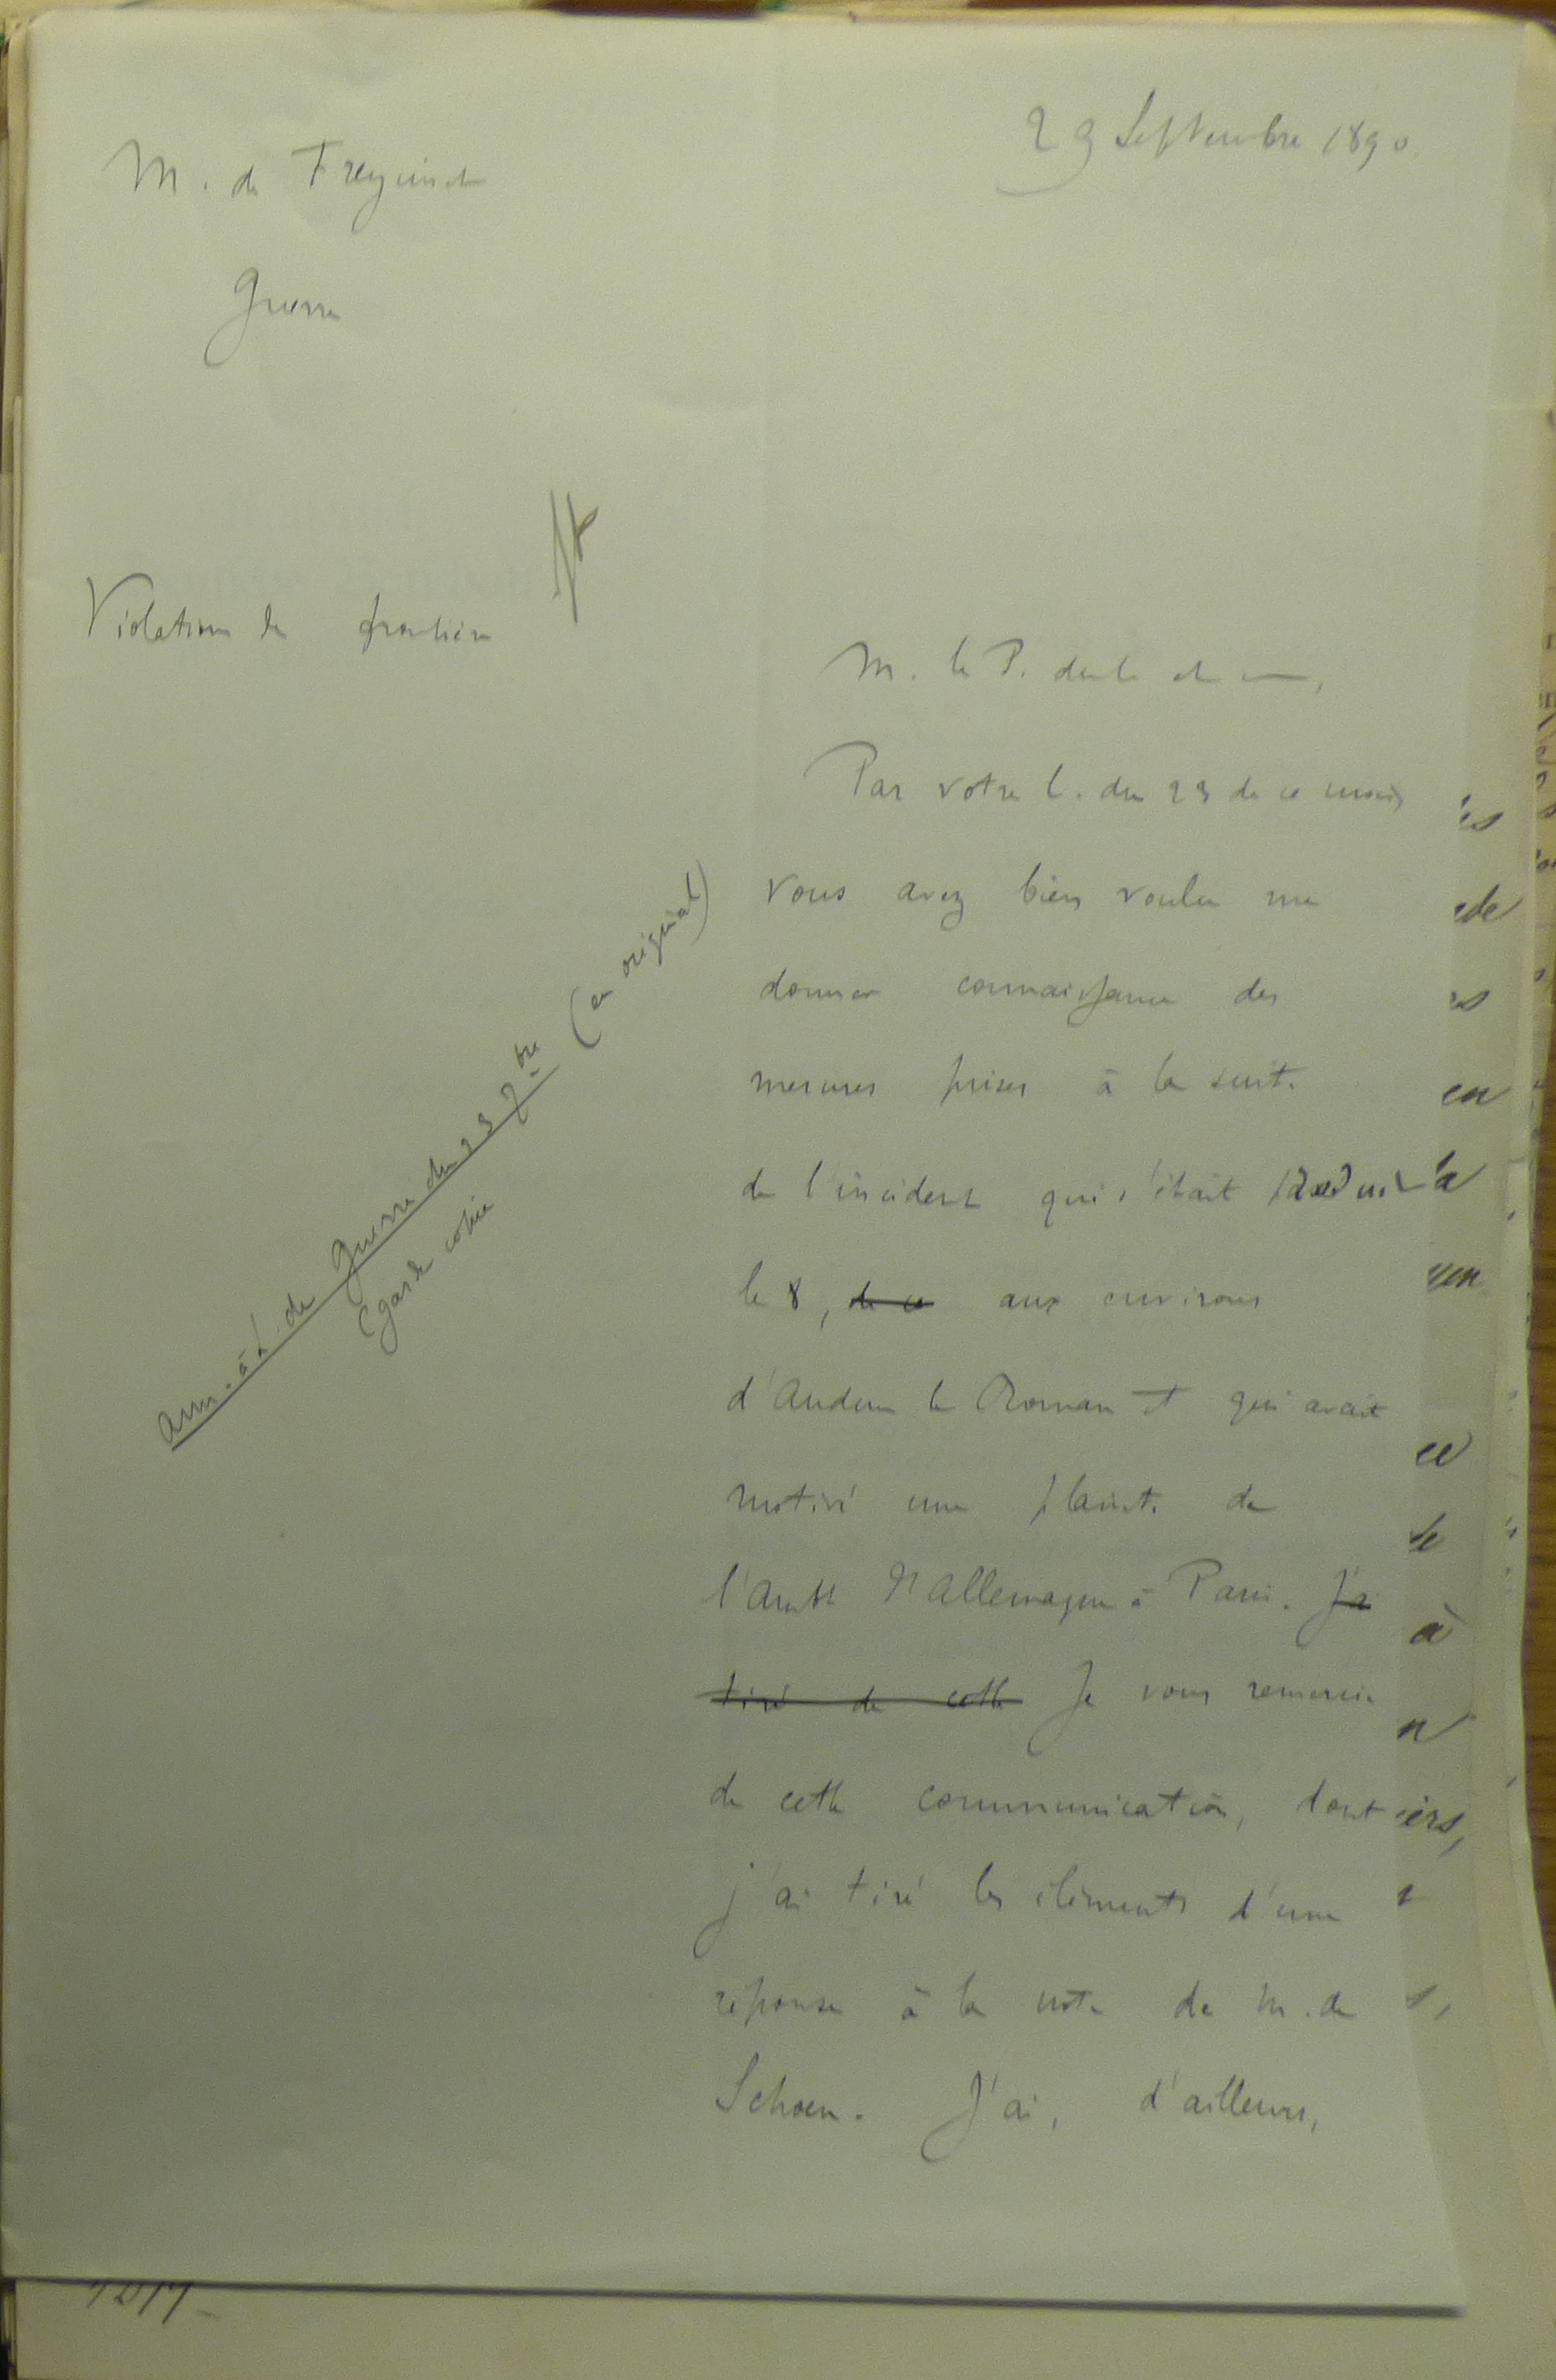 29 Septembre 1890.
M. de Freycinet
Guerre
Violation de frontière
M. le P. du C. et —,
Par votre l. du 23 de ce mois
vous avez bien voulu me
donner connaissance des
mesures prises à la suite
de l'incident qui s'était produit
le 8, de ce aux environs
d'Audun le Roman et qui avait
motivé une plainte de
l'Ambr d'Allemagne à Paris. J'ai
tiré de cette Je vous remercie
de cette communication, dont
j'ai tiré les éléments d'une
réponse à la note de M. de
Schoen. J'ai, d'ailleurs,
Ann. à L. de Guerre du 23 7bre (en original)
(garde copie
is
de
es
en
la
en
ce
le
à
n
iers,
s,